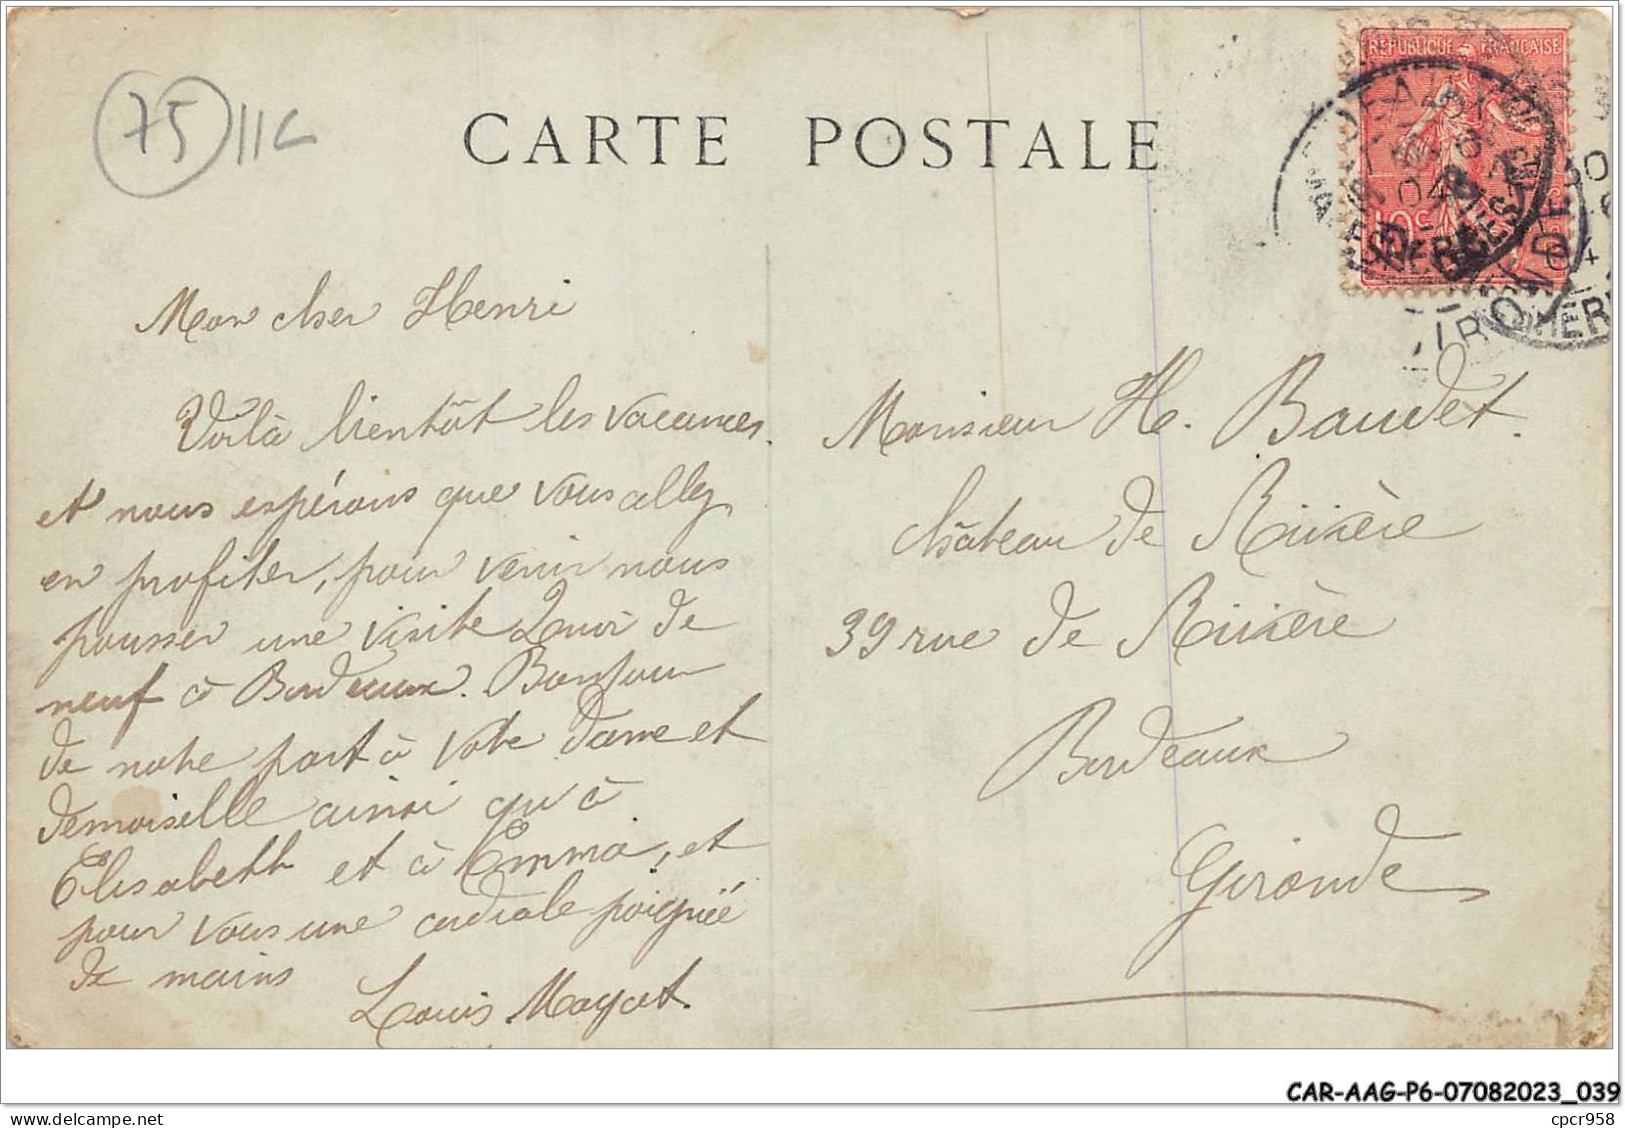 75 11C
CARTE POSTALE
REPUBLIQUE FRANÇAISE
10c
04
Mon cher Henri
Voilà bientôt les vacances
et nous espérons que vous allez
en profiter, pour venir nous
pousser une visite Quoi de
neuf à Bordeaux. Bonjour
de notre part à votre dame et
demoiselle ainsi qu'à
Elisabeth et à Emma, et
pour vous une cordiale poignée
de mains
Louis Mayat.
Monsieur H. Baudet.
Château de Rivière
39 rue de Rivière
Bordeaux
Gironde
CAR-AAG-P6-07082023_039
cpcr958